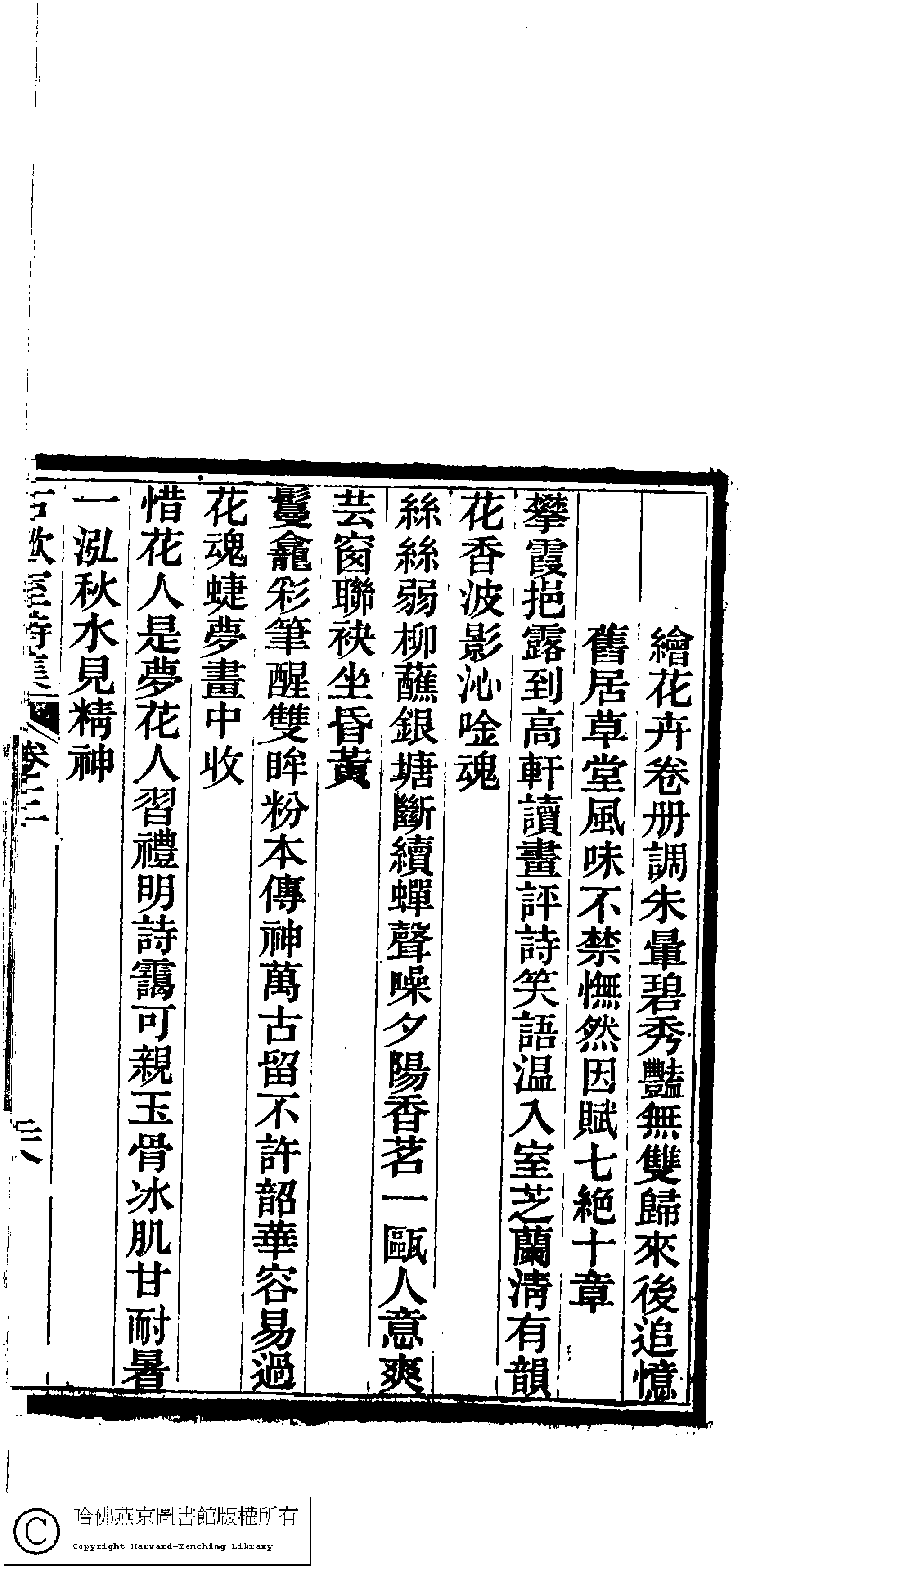 繪花卉卷册調朱暈碧秀豔無雙歸來後追憶
舊居草堂風味不禁憮然因賦七絶十章
攀霞挹露到高軒讀畫評詩笑語温入室芝蘭清有韻
花香波影沁唫魂
絲絲弱柳蘸銀塘斷續蟬聲噪夕陽香茗一甌人意爽
芸窗聯袂坐昏黃
鬘龕彩筆醒雙眸粉本傳神萬古留不許韶華容易過
花魂蜨夢畫中收
惜花人是夢花人習禮明詩靄可親玉骨冰肌甘耐暑
一泓秋水見精神
室詩集 卷三 二八
哈佛燕京圖書館版權所有
Copyright Harvard-Yenching Library